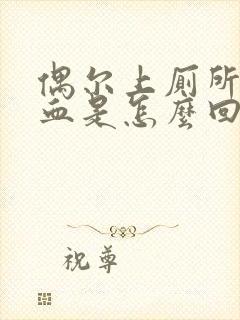 偶尔上厕所
血是怎麽回
祝尊